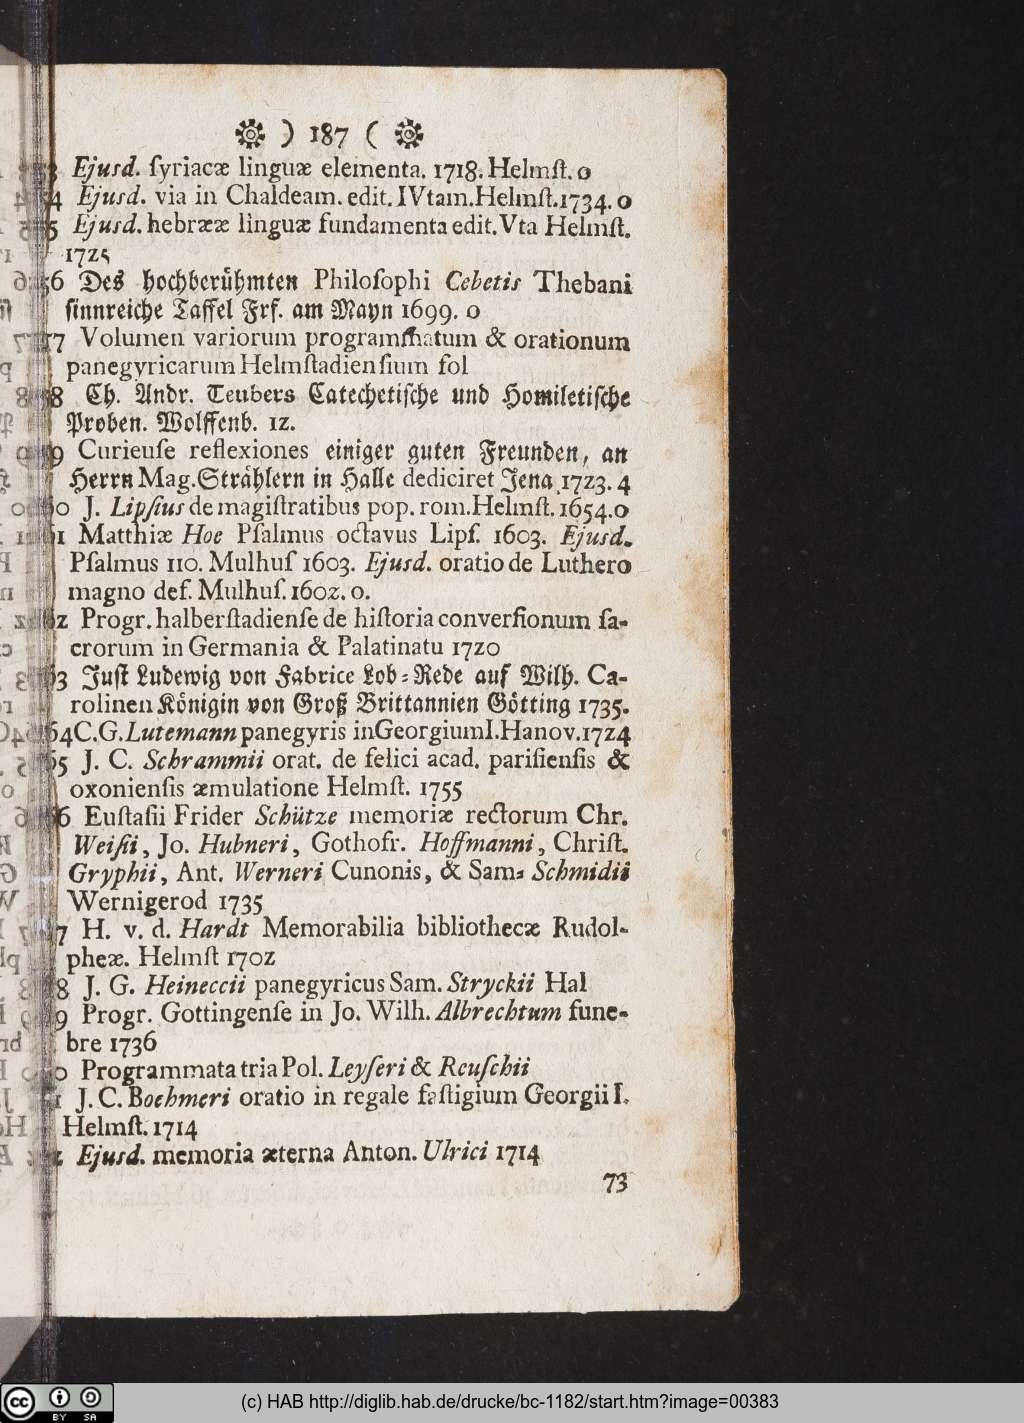 ) 187 (
3 Ejusd. ſyriacæ linguæ elementa. 1718. Helmſt. 0
4 Ejusd. via in Chaldeam. edit. IVtam. Helmſt. 1734. 0
5 Ejusd. hebrææ linguæ fundamenta edit. Vta Helmſt.
1725
56 Des hochberühmten Philoſophi Cebetis Thebani
ſinnreiche Taffel Frf. am Mayn 1699. 0
57 Volumen variorum programmatum & orationum
panegyricarum Helmſtadienſium fol
58 Ch. Andr. Teubers Catechetiſche und Homiletiſche
Proben. Wolffenb. 12.
59 Curieuſe reflexiones einiger guten Freunden, an
Herrn Mag. Strählern in Halle dediciret Jena 1723. 4
60 J. Lipſius de magiſtratibus pop. rom. Helmſt. 1654. 0
61 Matthiæ Hoe Pſalmus octavus Lipſ. 1603. Ejusd.
Pſalmus 110. Mulhuſ 1603. Ejusd. oratio de Luthero
magno def. Mulhuſ. 1602. 0.
62 Progr. halberſtadienſe de hiſtoria converſionum ſa-
crorum in Germania & Palatinatu 1720
63 Juſt Ludewig von Fabrice Lob-Rede auf Wilh. Ca-
rolinen Königin von Groß Brittannien Götting 1735.
64 C. G. Lutemann panegyris in Georgium I. Hanov. 1724
65 J. C. Schrammii orat. de felici acad. pariſienſis &
oxonienſis æmulatione Helmſt. 1755
66 Euſtaſii Frider Schütze memoriæ rectorum Chr.
Weiſii, Jo. Hubneri, Gothofr. Hoffmanni, Chriſt.
Gryphii, Ant. Werneri Cunonis, & Sam. Schmidii
Wernigerod 1735
7 H. v. d. Hardt Memorabilia bibliothecæ Rudol-
pheæ. Helmſt 1702
8 J. G. Heineccii panegyricus Sam. Stryckii Hal
9 Progr. Gottingenſe in Jo. Wilh. Albrechtum fune-
bre 1736
0 Programmata tria Pol. Leyſeri & Reuſchii
1 J. C. Boehmeri oratio in regale faſtigium Georgii I.
Helmſt. 1714
2 Ejusd. memoria æterna Anton. Ulrici 1714
73
(c) HAB http://diglib.hab.de/drucke/bc-1182/start.htm?image=00383
cc BY SA